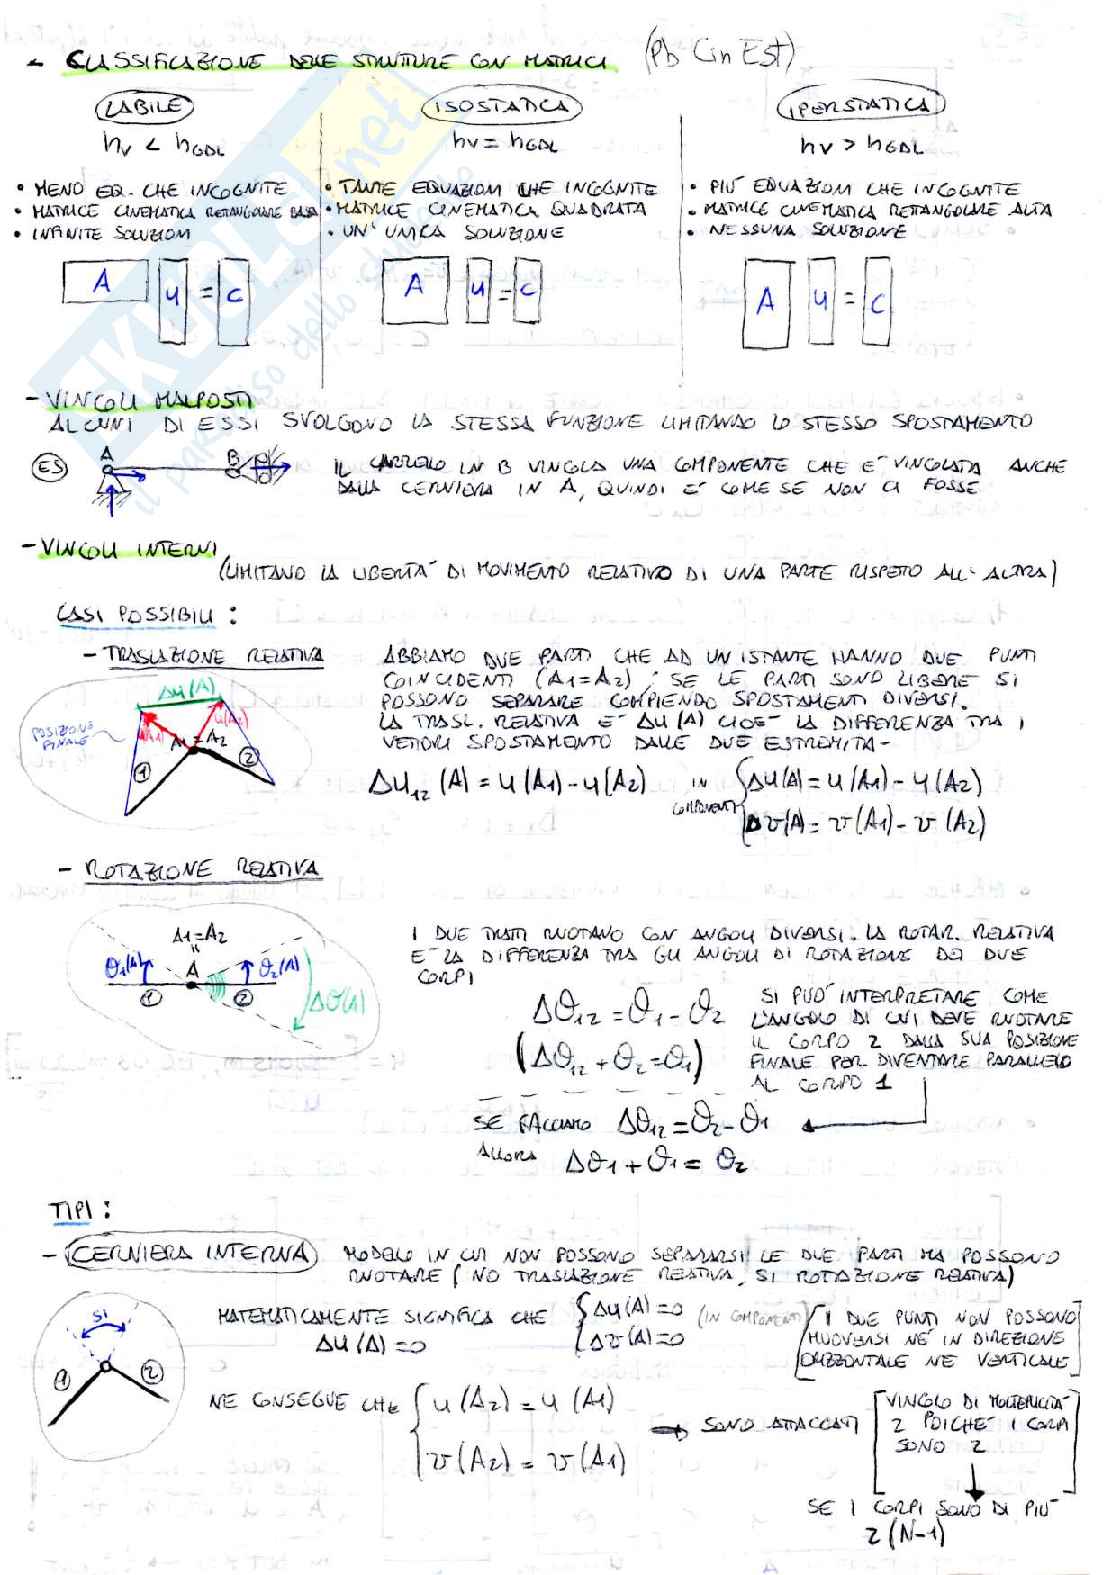 - CLASSIFICAZIONE DELLE STRUTTURE CON MATRICI (Pb Cin Est)
LABILE
ISOSTATICA
IPERSTATICA
hv < hGDL
hv = hGDL
hv > hGDL
• MENO EQ. CHE INCOGNITE
• MATRICE CINEMATICA RETTANGOLARE BASSA
• INFINITE SOLUZIONI
• TANTE EQUAZIONI CHE INCOGNITE
• MATRICE CINEMATICA QUADRATA
• UN'UNICA SOLUZIONE
• PIÙ EQUAZIONI CHE INCOGNITE
• MATRICE CINEMATICA RETTANGOLARE ALTA
• NESSUNA SOLUZIONE
A u = c
A u = c
A u = c
- VINCOLI MALPOSTI
ALCUNI DI ESSI SVOLGONO LA STESSA FUNZIONE LIMITANDO LO STESSO SPOSTAMENTO
ES
A
B
IL CARRELLO IN B VINCOLA UNA COMPONENTE CHE E' VINCOLATA ANCHE
DALLA CERNIERA IN A, QUINDI E' COME SE NON CI FOSSE
- VINCOLI INTERNI
(LIMITANO LA LIBERTA' DI MOVIMENTO RELATIVO DI UNA PARTE RISPETO ALL'ALTRA)
CASI POSSIBILI :
- TRASLAZIONE RELATIVA
Δu(A)
POSIZIONE
FINALE
u(A1)
u(A2)
A1=A2
1
2
ABBIAMO DUE PARTI CHE AD UN ISTANTE HANNO DUE PUNTI
COINCIDENTI (A1=A2); SE LE PARTI SONO LIBERE SI
POSSONO SEPARARE COMPIENDO SPOSTAMENTI DIVERSI.
LA TRASL. RELATIVA E' Δu(A) CIOE' LA DIFFERENZA TRA I
VETTORI SPOSTAMENTO DALLE DUE ESTREMITA'-
Δu12 (A) = u(A1)-u(A2)
IN
COMPONENTI
Δu(A) = u(A1)-u(A2)
Δv(A) = v(A1)-v(A2)
- ROTAZIONE RELATIVA
A1=A2
"
A
θ1(A)
θ2(A)
Δθ(A)
1
2
I DUE TRATTI RUOTANO CON ANGOLI DIVERSI. LA ROTAZ. RELATIVA
E' LA DIFFERENZA TRA GLI ANGOLI DI ROTAZIONE DEI DUE
CORPI
Δθ12 = θ1 - θ2
(Δθ12 + θ2 = θ1)
SI PUO' INTERPRETARE COME
L'ANGOLO DI CUI DEVE RUOTARE
IL CORPO 2 DALLA SUA POSIZIONE
FINALE PER DIVENTARE PARALLELO
AL CORPO 1
SE FACCIAMO Δθ12 = θ2 - θ1
ALLORA Δθ1 + θ1 = θ2
TIPI :
- CERNIERA INTERNA
MODELLO IN CUI NON POSSONO SEPARARSI LE DUE PARTI MA POSSONO
RUOTARE (NO TRASLAZIONE RELATIVA, SI ROTAZIONE RELATIVA)
SI
1
2
MATEMATICAMENTE SIGNIFICA CHE
Δu(A)=0
Δu(A)=0
Δv(A)=0
(IN COMPONENTI)
I DUE PUNTI NON POSSONO
MUOVERSI NE' IN DIREZIONE
ORIZZONTALE NE VERTICALE
NE CONSEGUE CHE
u(A2) = u(A1)
v(A2) = v(A1)
→ SONO ATTACCATI
VINCOLO DI MOLTEPLICITA'
2 POICHE' I CORPI
SONO 2
SE I CORPI SONO DI PIU'
2(N-1)
SKUOLA.net
il paradiso dello studente